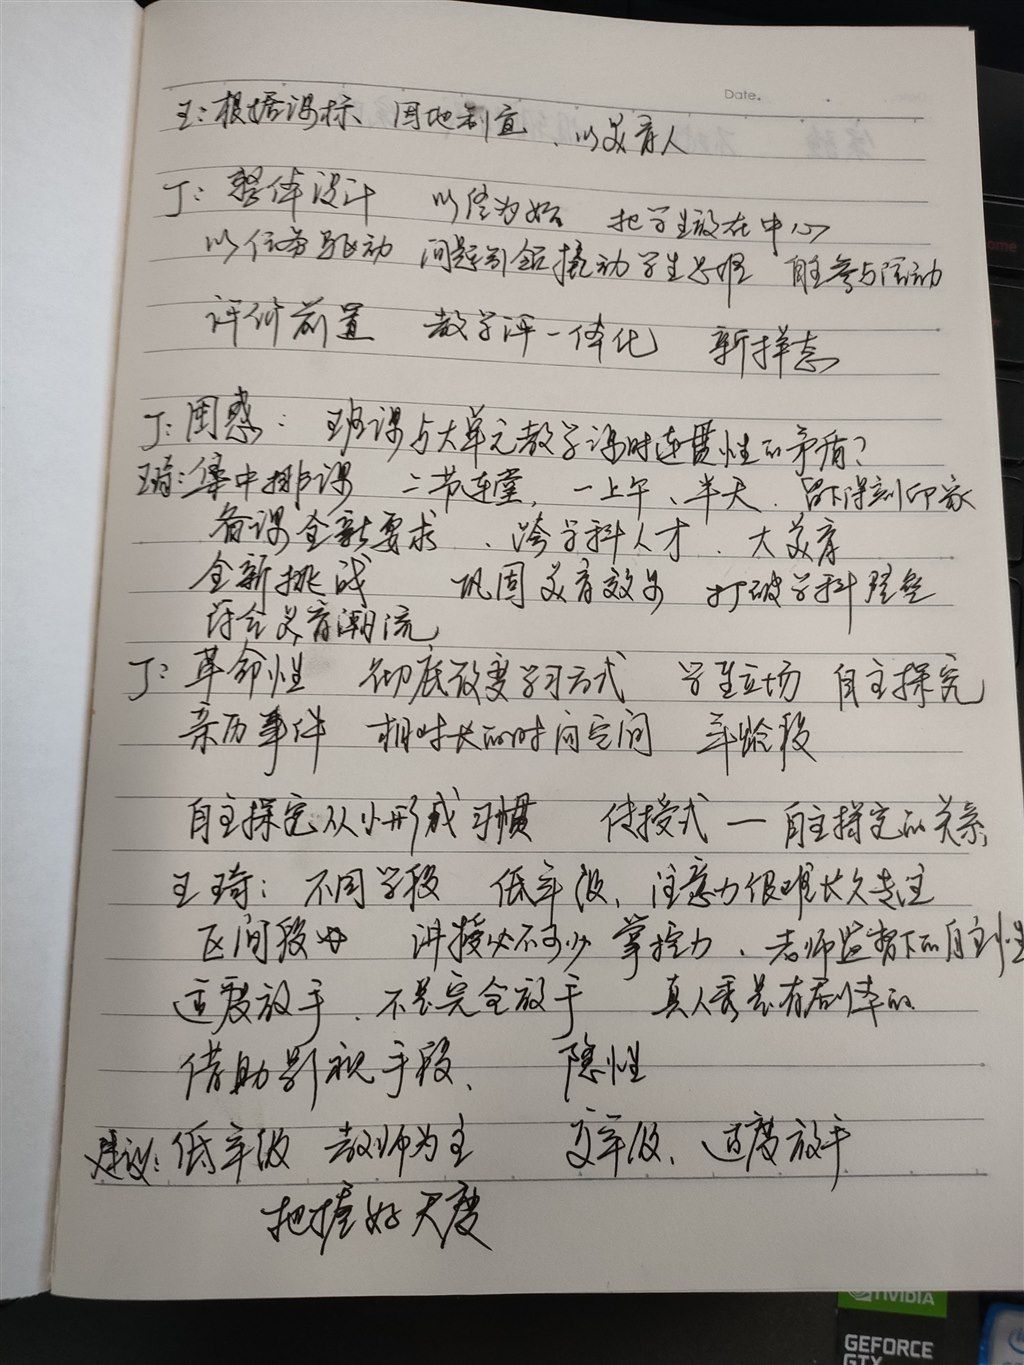 Date.
王：根据课标、因地制宜、以美育人
丁：整体设计 以终为始 把学生放在中心
以任务驱动 问题引领撬动学生思维 自主参与活动
评价前置 教学评一体化 新样态
丁：困惑：班课与大单元教学课时连贯性的矛盾？
王琦：集中排课 二节连堂，一上午、半天．留下深刻印象
备课全新要求、跨学科人才．大美育
全新挑战 巩固美育效果 打破学科壁垒
符合美育潮流
丁：革命性 彻底改变学习方式 学生立场 自主探究
亲历事件 相对长的时间空间 年龄段
自主探究从小形成习惯 传授式 — 自主探究的关系
王琦：不同学段 低年级、注意力很难长久专注
区间段 讲授必不可少 掌控力、老师监督下的自主性
适度放手、不是完全放手 真人秀是有剧本的
借助影视手段、 隐性
建议：低年级 教师为主 高年级、适度放手
把握好尺度
NVIDIA
GEFORCE
GTX